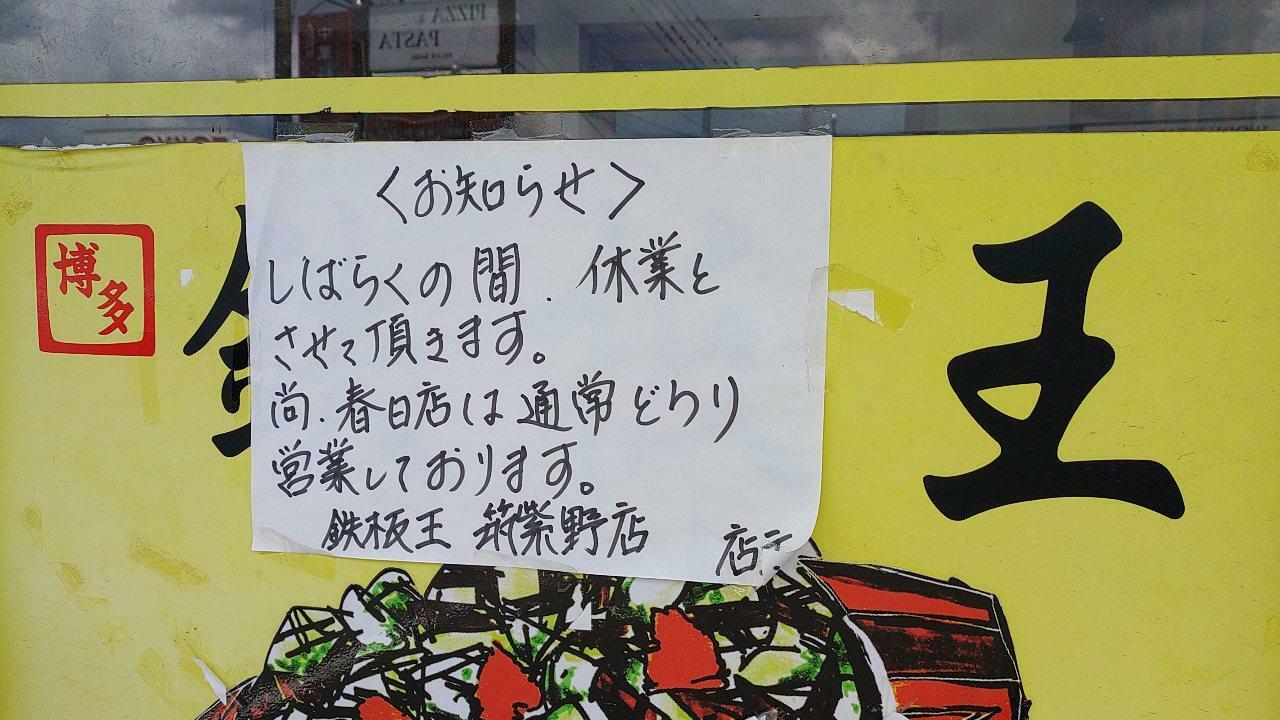 PIZZA &
PASTA
〈お知らせ〉
しばらくの間、休業と
させて頂きます。
尚、春日店は通常どうり
営業しております。
鉄板王 筑紫野店
博多
王